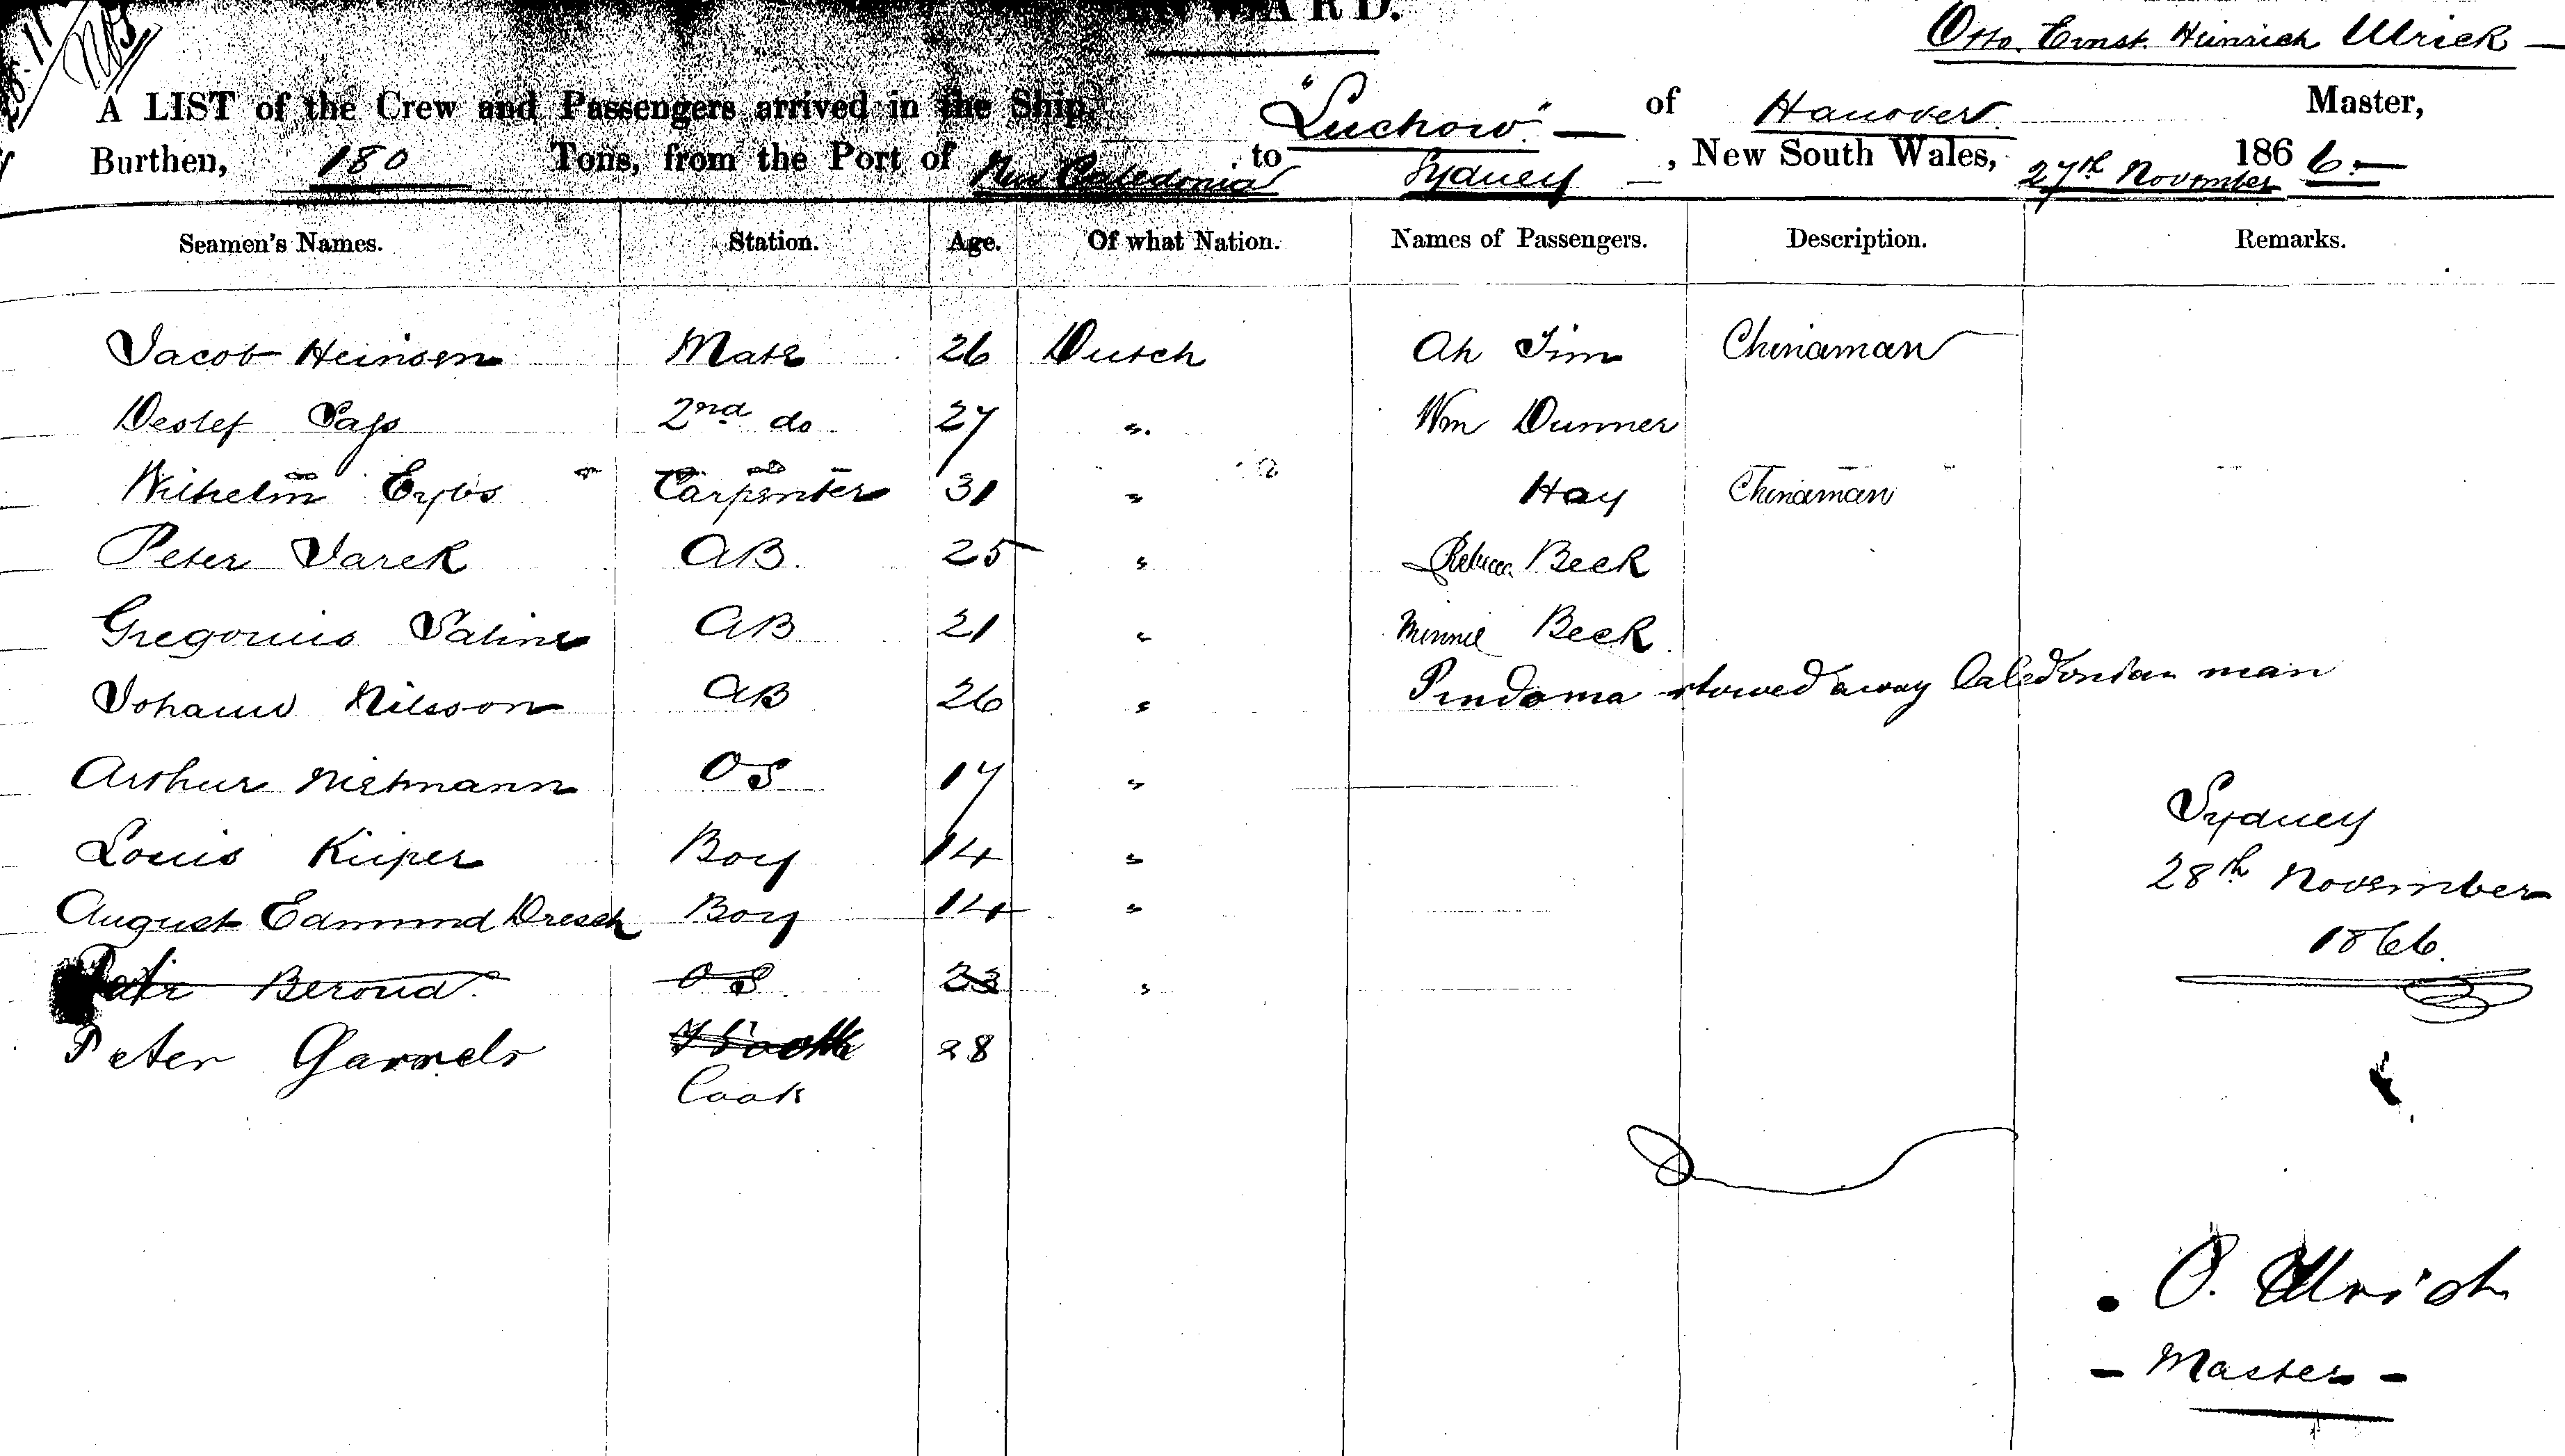 Otto Ernst Heinrich Ulrick
A LIST of the Crew and Passengers arrived in the Ship, "Luchow" of Hanover Master,
Burthen, 180 Tons, from the Port of New Caledonia to Sydney, New South Wales, 27th November 1866
Seamen's Names. Station. Age. Of what Nation. Names of Passengers. Description. Remarks.
Jacob Heinsen Mate 26 Dutch Ah Tim Chinaman
Detlef 2nd do 27 " Wm Dunner
Wilhelm Eybs Carpenter 31 " Hay Chinaman
Peter Jarek AB. 25 " Rebecca Beek
Gregorius AB 21 " Minnie Beek
Johann Nilsson AB 26 " Pindoma stowed away Caledonian man
Arthur Nietmann OS 17 "
Sydney
Louis Küper Boy 14 "
28th November
August Edmund Dresch Boy 14 "
1866.
Beroud OS 23 "
Peter Garrels 28
Cook
O. Ulrich
- Master -